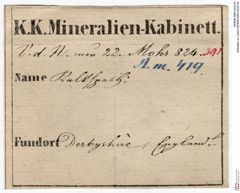 K.K. Mineralien-Kabinett.
V. d. N. von 22. Mohs 824. 391
A.m. 419
Name Kalkspath.
Fundort Derbyshire England.